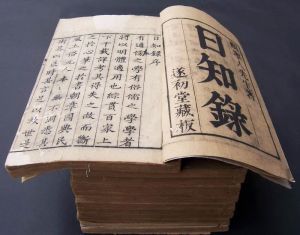 日知錄
遂初堂藏板
日知錄序
有通儒之學有俗儒之學學者
將以明體適用也綜貫百家上
下千載詳考其得失之故而斷
之於心筆之於書朝章國典民
風土俗元元本本無不洞悉其
術足以匡時其言足以救世是